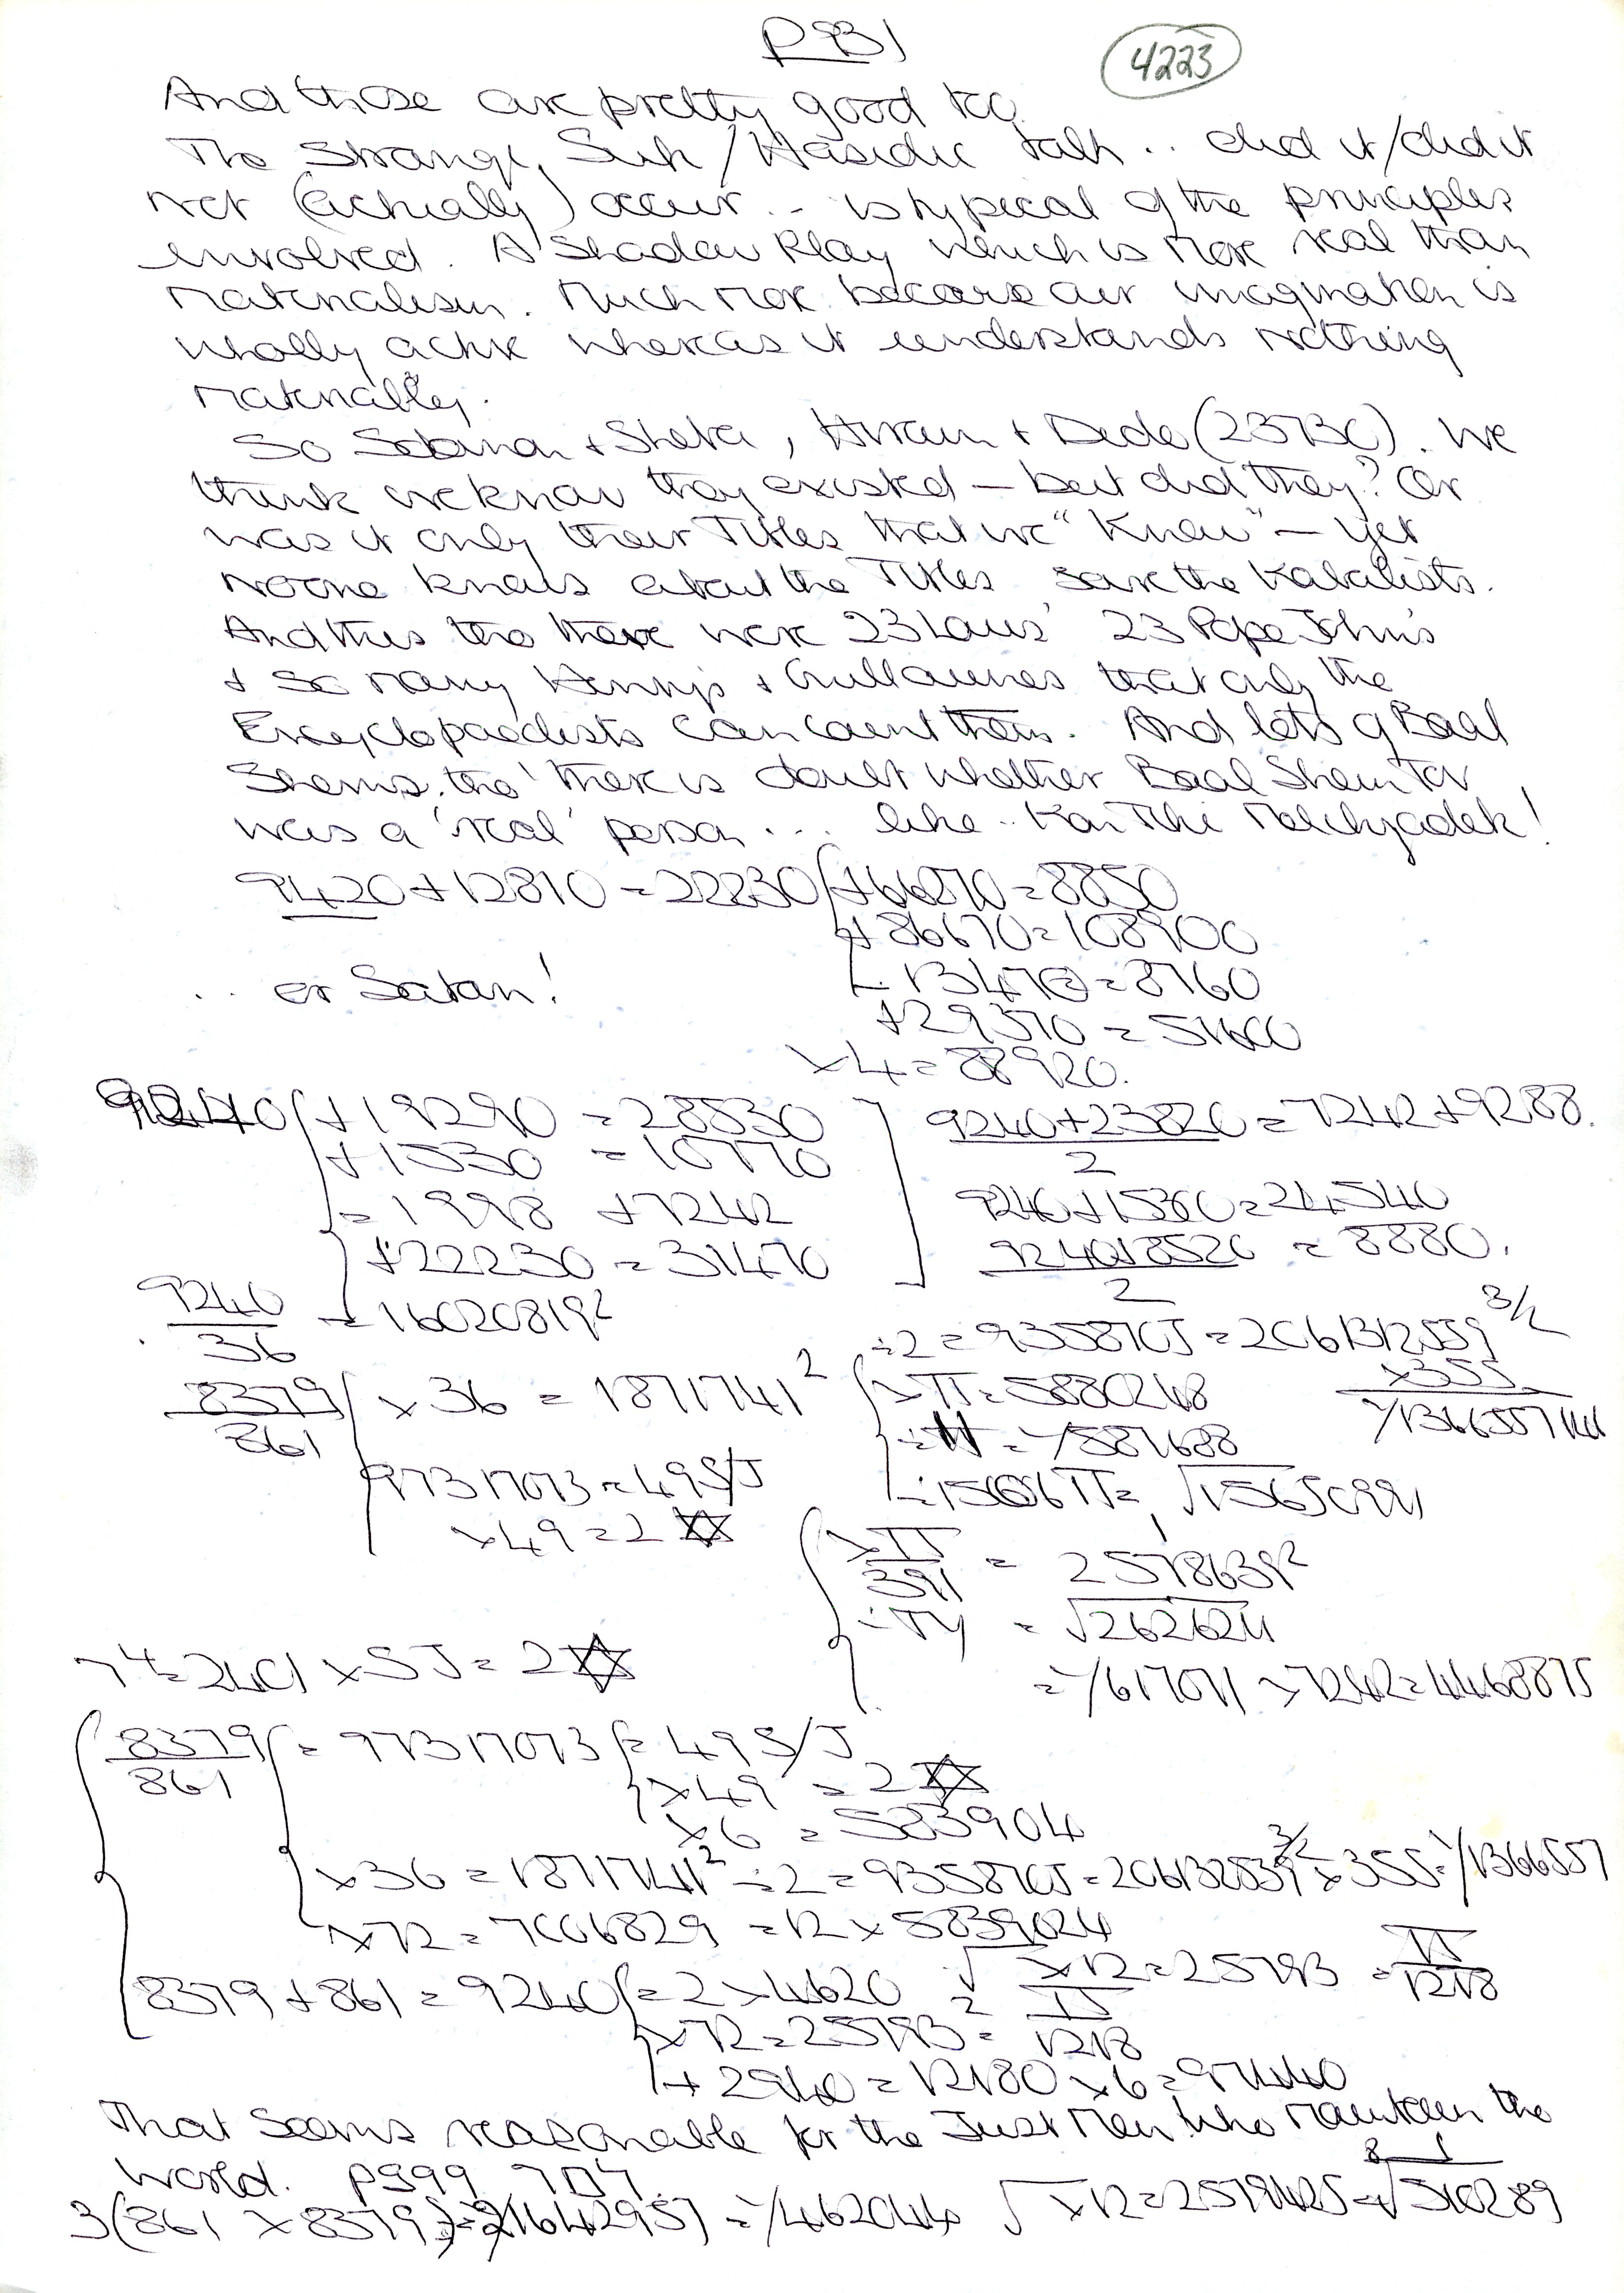 P931
4223
And those are pretty good too.
The Strange, Sufi/Hasidic talk .. did it/did it
not (actually) occur .. is typical of the principles
involved. A Shadow Play which is more real than
materialism. Much more because our imagination is
wholly active whereas it understands nothing
materially.
So Solomon + Sheba, Hiram + Dido (237BC). We
think we know they existed — but did they? Or
was it only their Titles that we "Knew" — yet
no one knows about the Titles save the Kabalists.
And thus tho there were 23 Pope John's
+ so many Henrys + Guillaumes that only the
Encyclopaedists can count them. And lots of Baal
Shems. tho' there is doubt whether Baal Shem Tov
was a 'real' person ... like .. Kon Tiki Melchizadek!
9420 + 12810 = 22230 + 66270 = 8850
+ 86670 = 108900
- 13470 = 8760
.. or Satan!
+ 29370 = 51600
× 4 = 88920.
9240 + 19290 = 28530
+ 1530 = 10770
= 1998 + 7242
+ 22230 = 31470
9240 + 23820 = 7242 + 9288.
2
9240 + 15300 = 24540
9240 + 8520 = 8880.
2
9240 = 16020819²
36
÷ 2 = 9358705 = 206132559 3/2
× 355
1/1366557144
8379 × 36 = 1871741²
861
× π = 5880248
97317073 = 49 S/J
× 49 = 2 ✡
× π = 2578639²
391
= √262624
7⁴ = 2401 × SJ = 2 ✡
= 1/617071 × 7242 = 4468875
8379 = 97317073 = 49 S/J
861
× 49 = 2 ✡
× 6 = 583904
× 36 = 1871741² ÷ 2 = 9358705 = 206132839 3/2 × 355 = 1/1366557
× 72 = 7006829 = 12 × 5839024
8379 + 861 = 9240 = 2 × 4620
√ × 12 = 25793 = π
1218
× 72 = 25793² = π
1218
+ 2940 = 12180 × 6 = 97440
That seems reasonable for the Just Men who maintain the
World. P999
3(861 × 8379) = 21642957 = 1/462044 √ × 12 = 2579425 = √510289